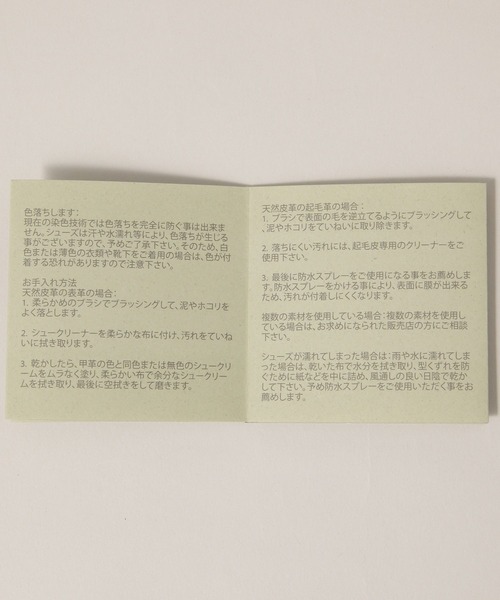 色落ちします：
現在の染色技術では色落ちを完全に防ぐ事は出来ま
せん。シューズは汗や水濡れ等により、色落ちが生じる
事がございますので、予めご了承下さい。そのため、白
色または薄色の衣類や靴下をご着用の場合は、色が付
着する恐れがありますので注意下さい。
お手入れ方法
天然皮革の表革の場合：
1. 柔らかめのブラシでブラッシングして、泥やホコリを
よく落とします。
2. シュークリーナーを柔らかな布に付け、汚れをていね
いに拭き取ります。
3. 乾かしたら、甲革の色と同色または無色のシュークリ
ームをムラなく塗り、柔らかい布で余分なシュークリー
ムを拭き取り、最後に空拭きをして磨きます。
天然皮革の起毛革の場合：
1. ブラシで表面の毛を逆立てるようにブラッシングして
、泥やホコリをていねいに取り除きます。
2. 落ちにくい汚れには、起毛皮専用のクリーナーをご
使用下さい。
3. 最後に防水スプレーをご使用になる事をお薦めしま
す。防水スプレーをかける事により、表面に膜が出来る
ため、汚れが付着しにくくなります。
複数の素材を使用している場合：複数の素材を使用し
ている場合は、お求めになられた販売店の方にご相談
下さい。
シューズが濡れてしまった場合は：雨や水に濡れてしま
った場合は、乾いた布で水分を拭き取り、型くずれを防
ぐために紙などを中に詰め、風通しの良い日陰で乾か
して下さい。予め防水スプレーをご使用いただく事をお
薦めします。